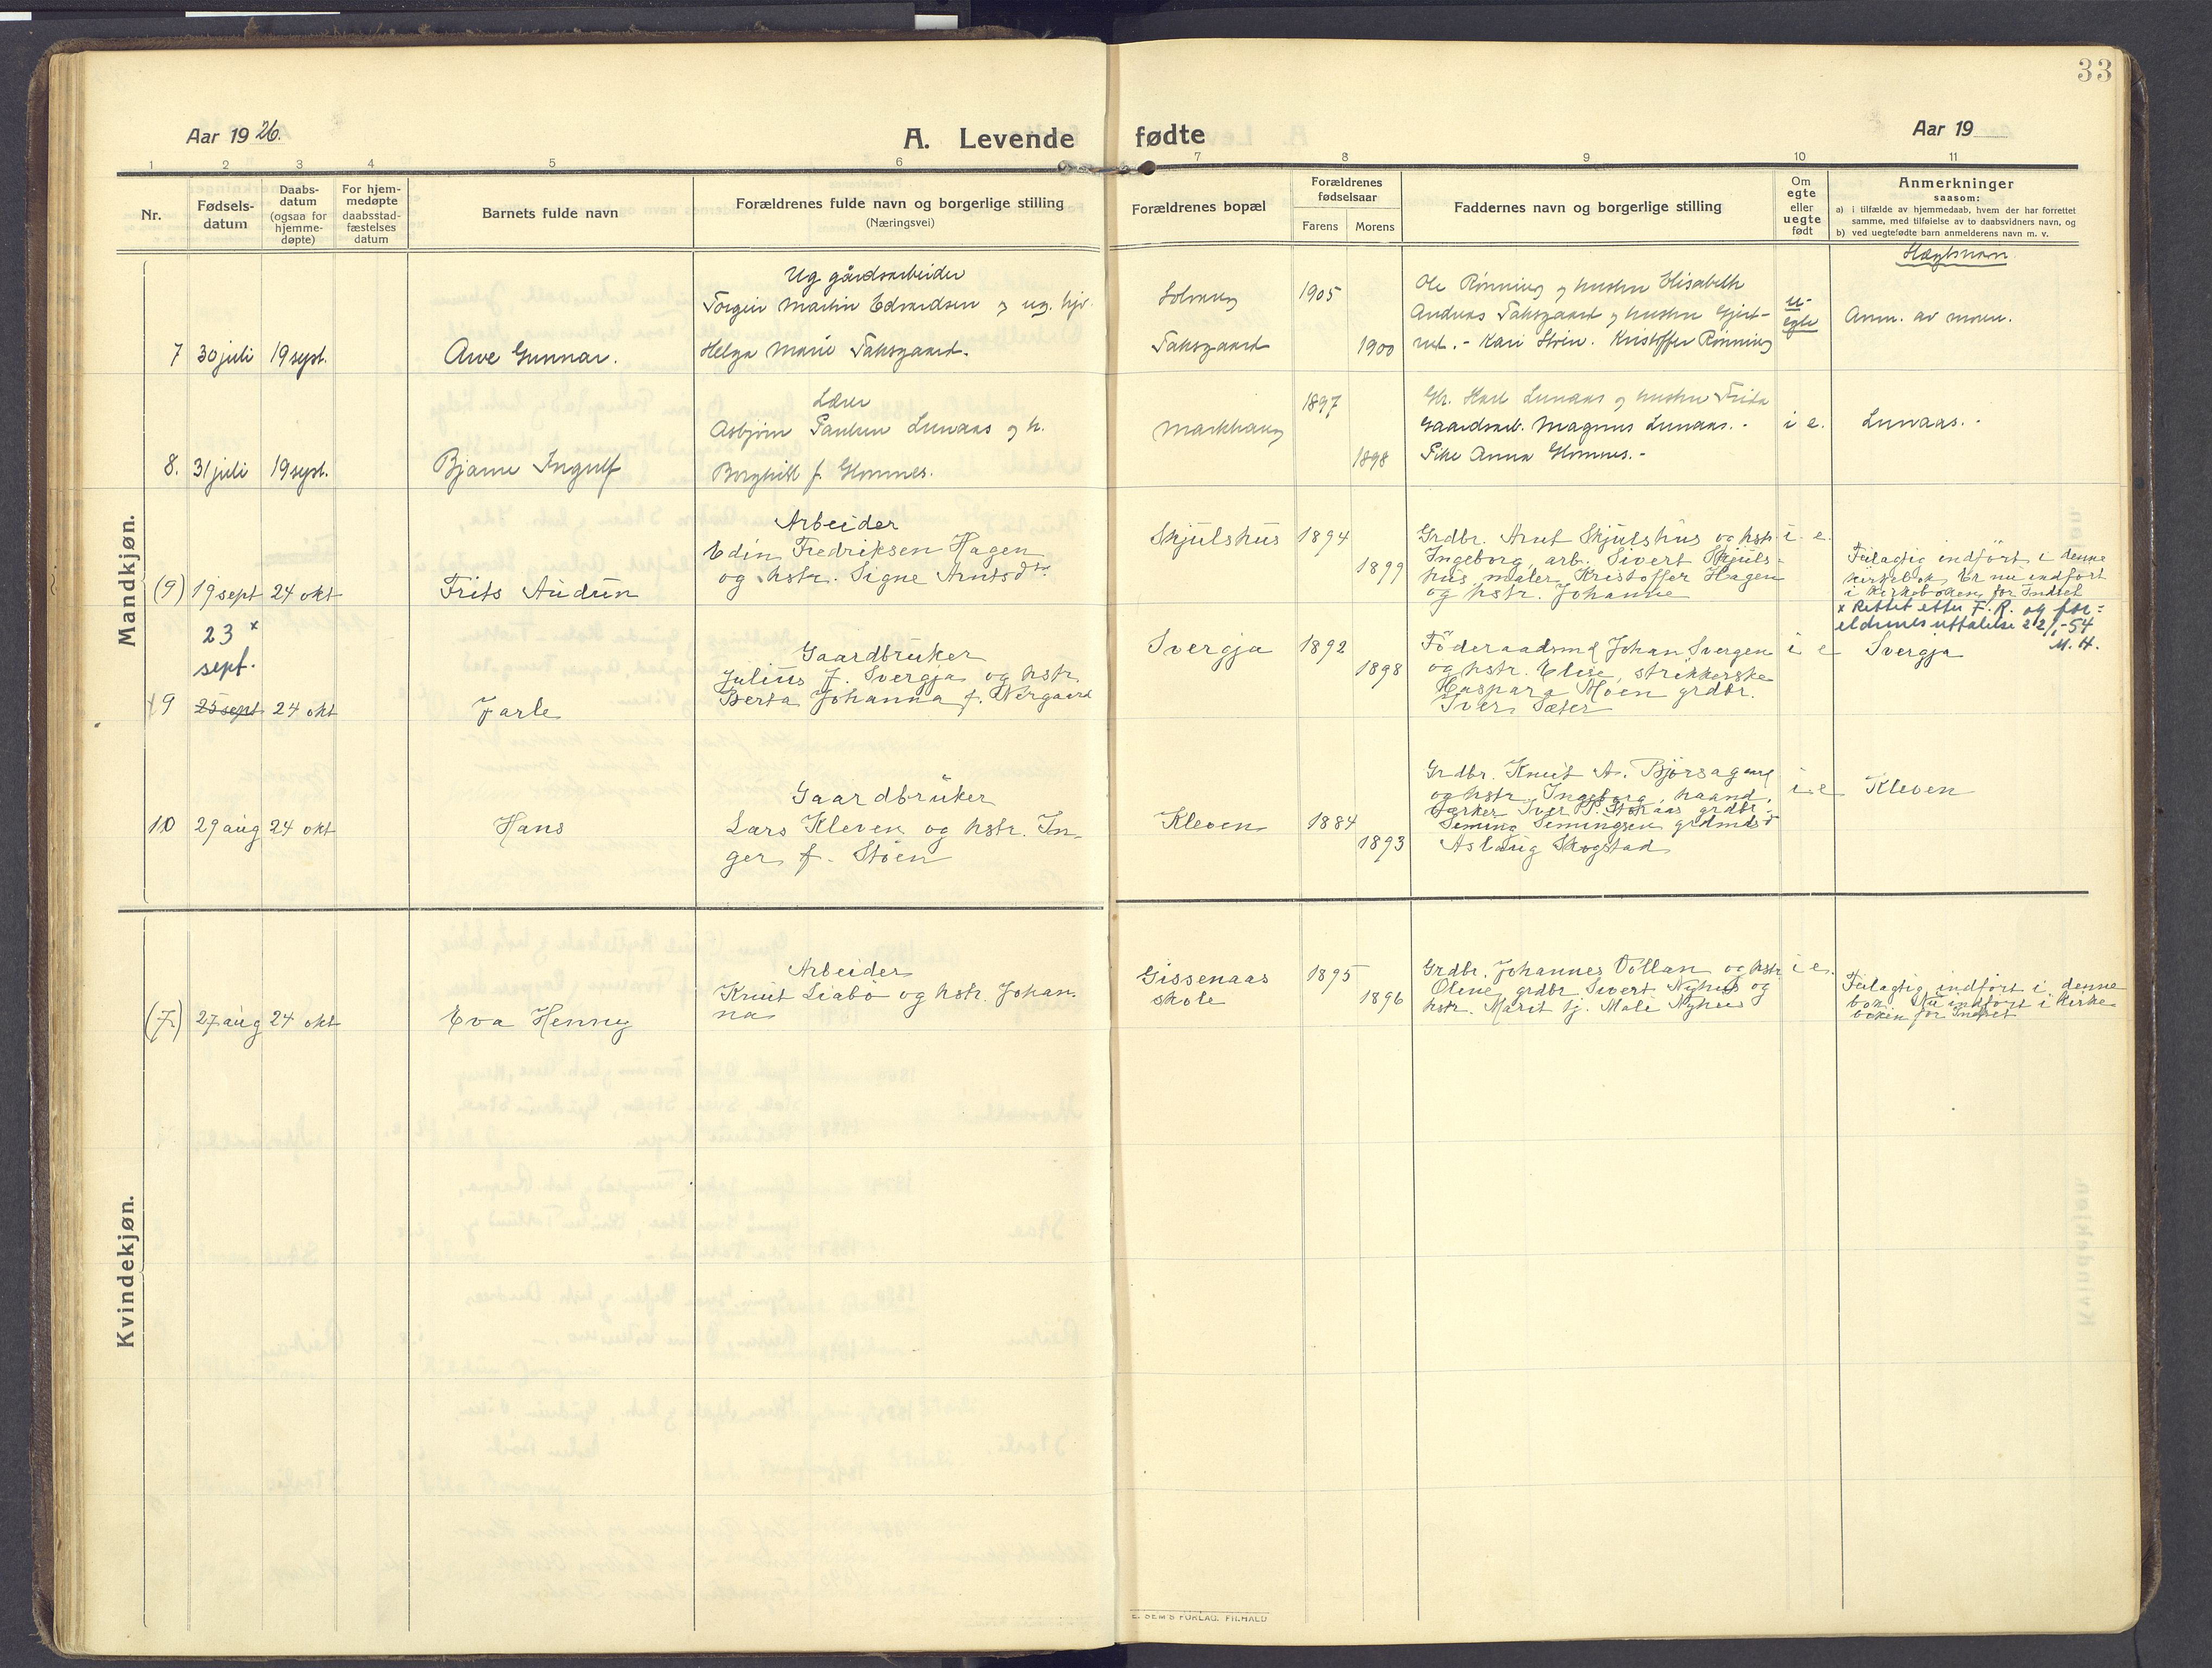 33
Aar 1926.
A. Levende fødte
Aar 19
1 2 3 4 5 6 7 8 9 10 11
Nr.
Fødsels-
datum
Daabs-
datum
(ogsaa for
hjemme-
døpte)
For hjem-
medøpte
daabsstad-
fæstelses
datum
Barnets fulde navn
Forældrenes fulde navn og borgerlige stilling
(Næringsvei)
Forældrenes bopæl
Forældrenes
fødselsaar
Farens Morens
Faddernes navn og borgerlige stilling
Om
egte
eller
uegte
født
Anmerkninger
saasom:
a) i tilfælde av hjemmedaab, hvem der har forrettet
samme, med tilføielse av to daabsvidners navn, og
b) ved uegtefødte barn anmelderens navn m. v.
Slægtsnavn.
Mandkjøn.
7 30 juli 19 sept.
Arve Gunnar.
Ug gårdsarbeider
Torgeir Martin Edvardsen og ug.
Helga Marie Taksgaard.
Solvang
Taksgaard
1905
1900
Ole Rønning og hustru Elisabeth
Andreas Taksgaard og hustru Gjert-
rud. - Kari Stöen. Kristoffer Rønning
u-
egte
Anm. av moren.
8. 31 juli 19 sept.
Bjarne Ingulf
Lærer
Asbjørn Paulsen Lunaas og h.
Borghild f. Glomnes.
Markhaug
1897
1898
Gbr. Karl Lunaas og hustru Frida
Gaardsarb. Magnus Lunaas. -
Pike Anna Glomnes. -
i e.
Lunaas. -
(9) 19 sept 24 okt
Frits Audun
Arbeider
Edin Fredriksen Hagen
og hstr. Signe Arntsdtr
Skjulshus
1894
1899
Grdbr. Arnt Skjulshus og hstr
Ingeborg, arb. Sivert Skjuls-
hus, maler Kristoffer Hagen
og hstr. Johanne
i e.
Feilagtig indført i denne
kirkebok. Er nu indført
i kirkeboken for Indset
x Rettet etter F.R. og for=
eldrenes uttalelse 22/1-54
M. H.
23 x
sept.
9 25 sept 24 okt
Jarle
Gaardbruker
Julius J. Svergja og hstr
Berta Johanna f. Nergaard
Svergja
1892
1898
Föderaadsmd Johan Svergen
og hstr. Elise, strikkerske
Kaspara Moen grdbr.
Iver Sæter
i e
Svergja
10 29 aug 24 okt
Hans
Gaardbruker
Lars Kleven og hstr. In-
ger f. Stöen
Kleven
1884
1893
Grdbr. Knut A. Björsagaard
og hstr. Ingeborg, haand.
verker Iver P. Stokaas grdbr.
Seming Semingsen grdmds d
Aslaug Skogstad
i e
Kleven
Kvindekjøn.
(7) 27 aug 24 okt
Eva Henny
Arbeider
Knut Liabö og hstr. Johan-
na
Gissenaas
skole
1895
1896
Grdbr. Johannes Vollan og hstr
Oline, grdbr Sivert Nyhus og
hstr. Marit tj. Mali Nyhus
i e.
Feilagtig indført i denne
bok. Nu indført i kirke-
boken for Indset